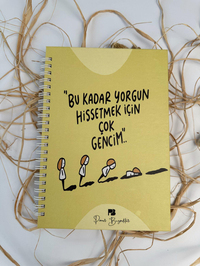 "BU KADAR YORGUN
HİSSETMEK İÇİN
ÇOK
GENCİM"..